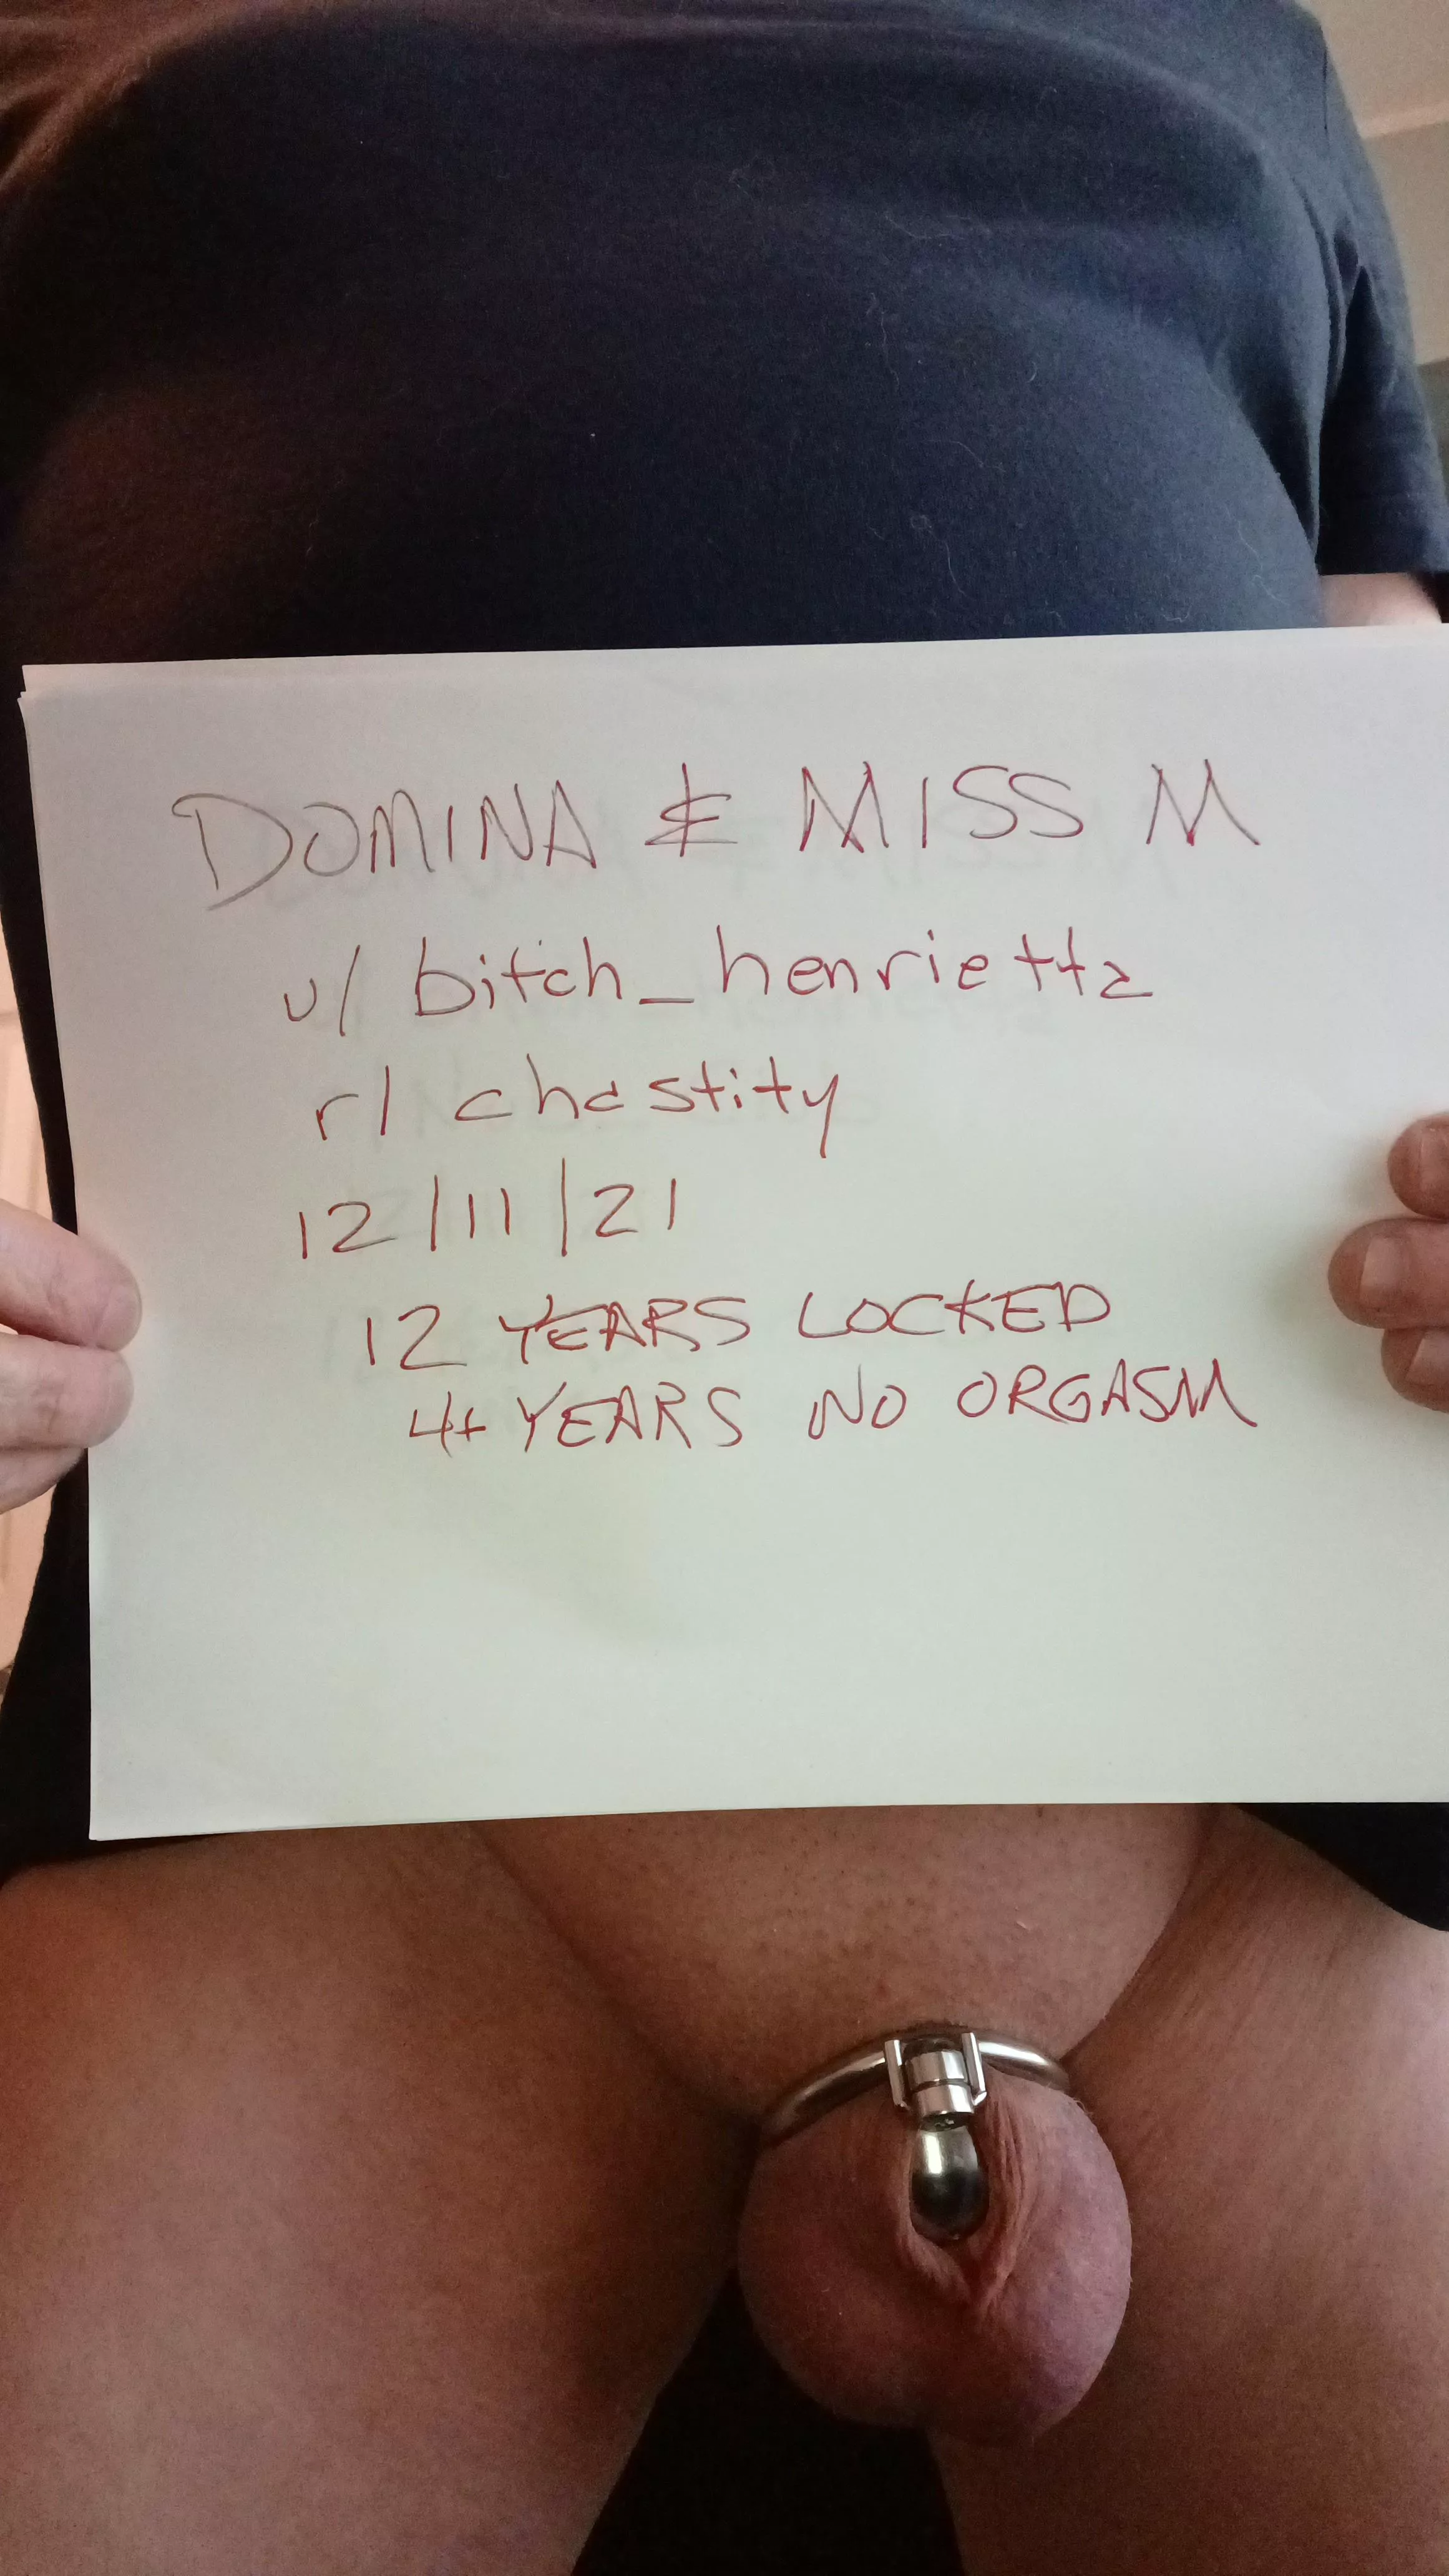 DOMINA & MISS M
u/bitch_henrietta
r/chastity
12/11/21
12 YEARS LOCKED
4+ YEARS NO ORGASM